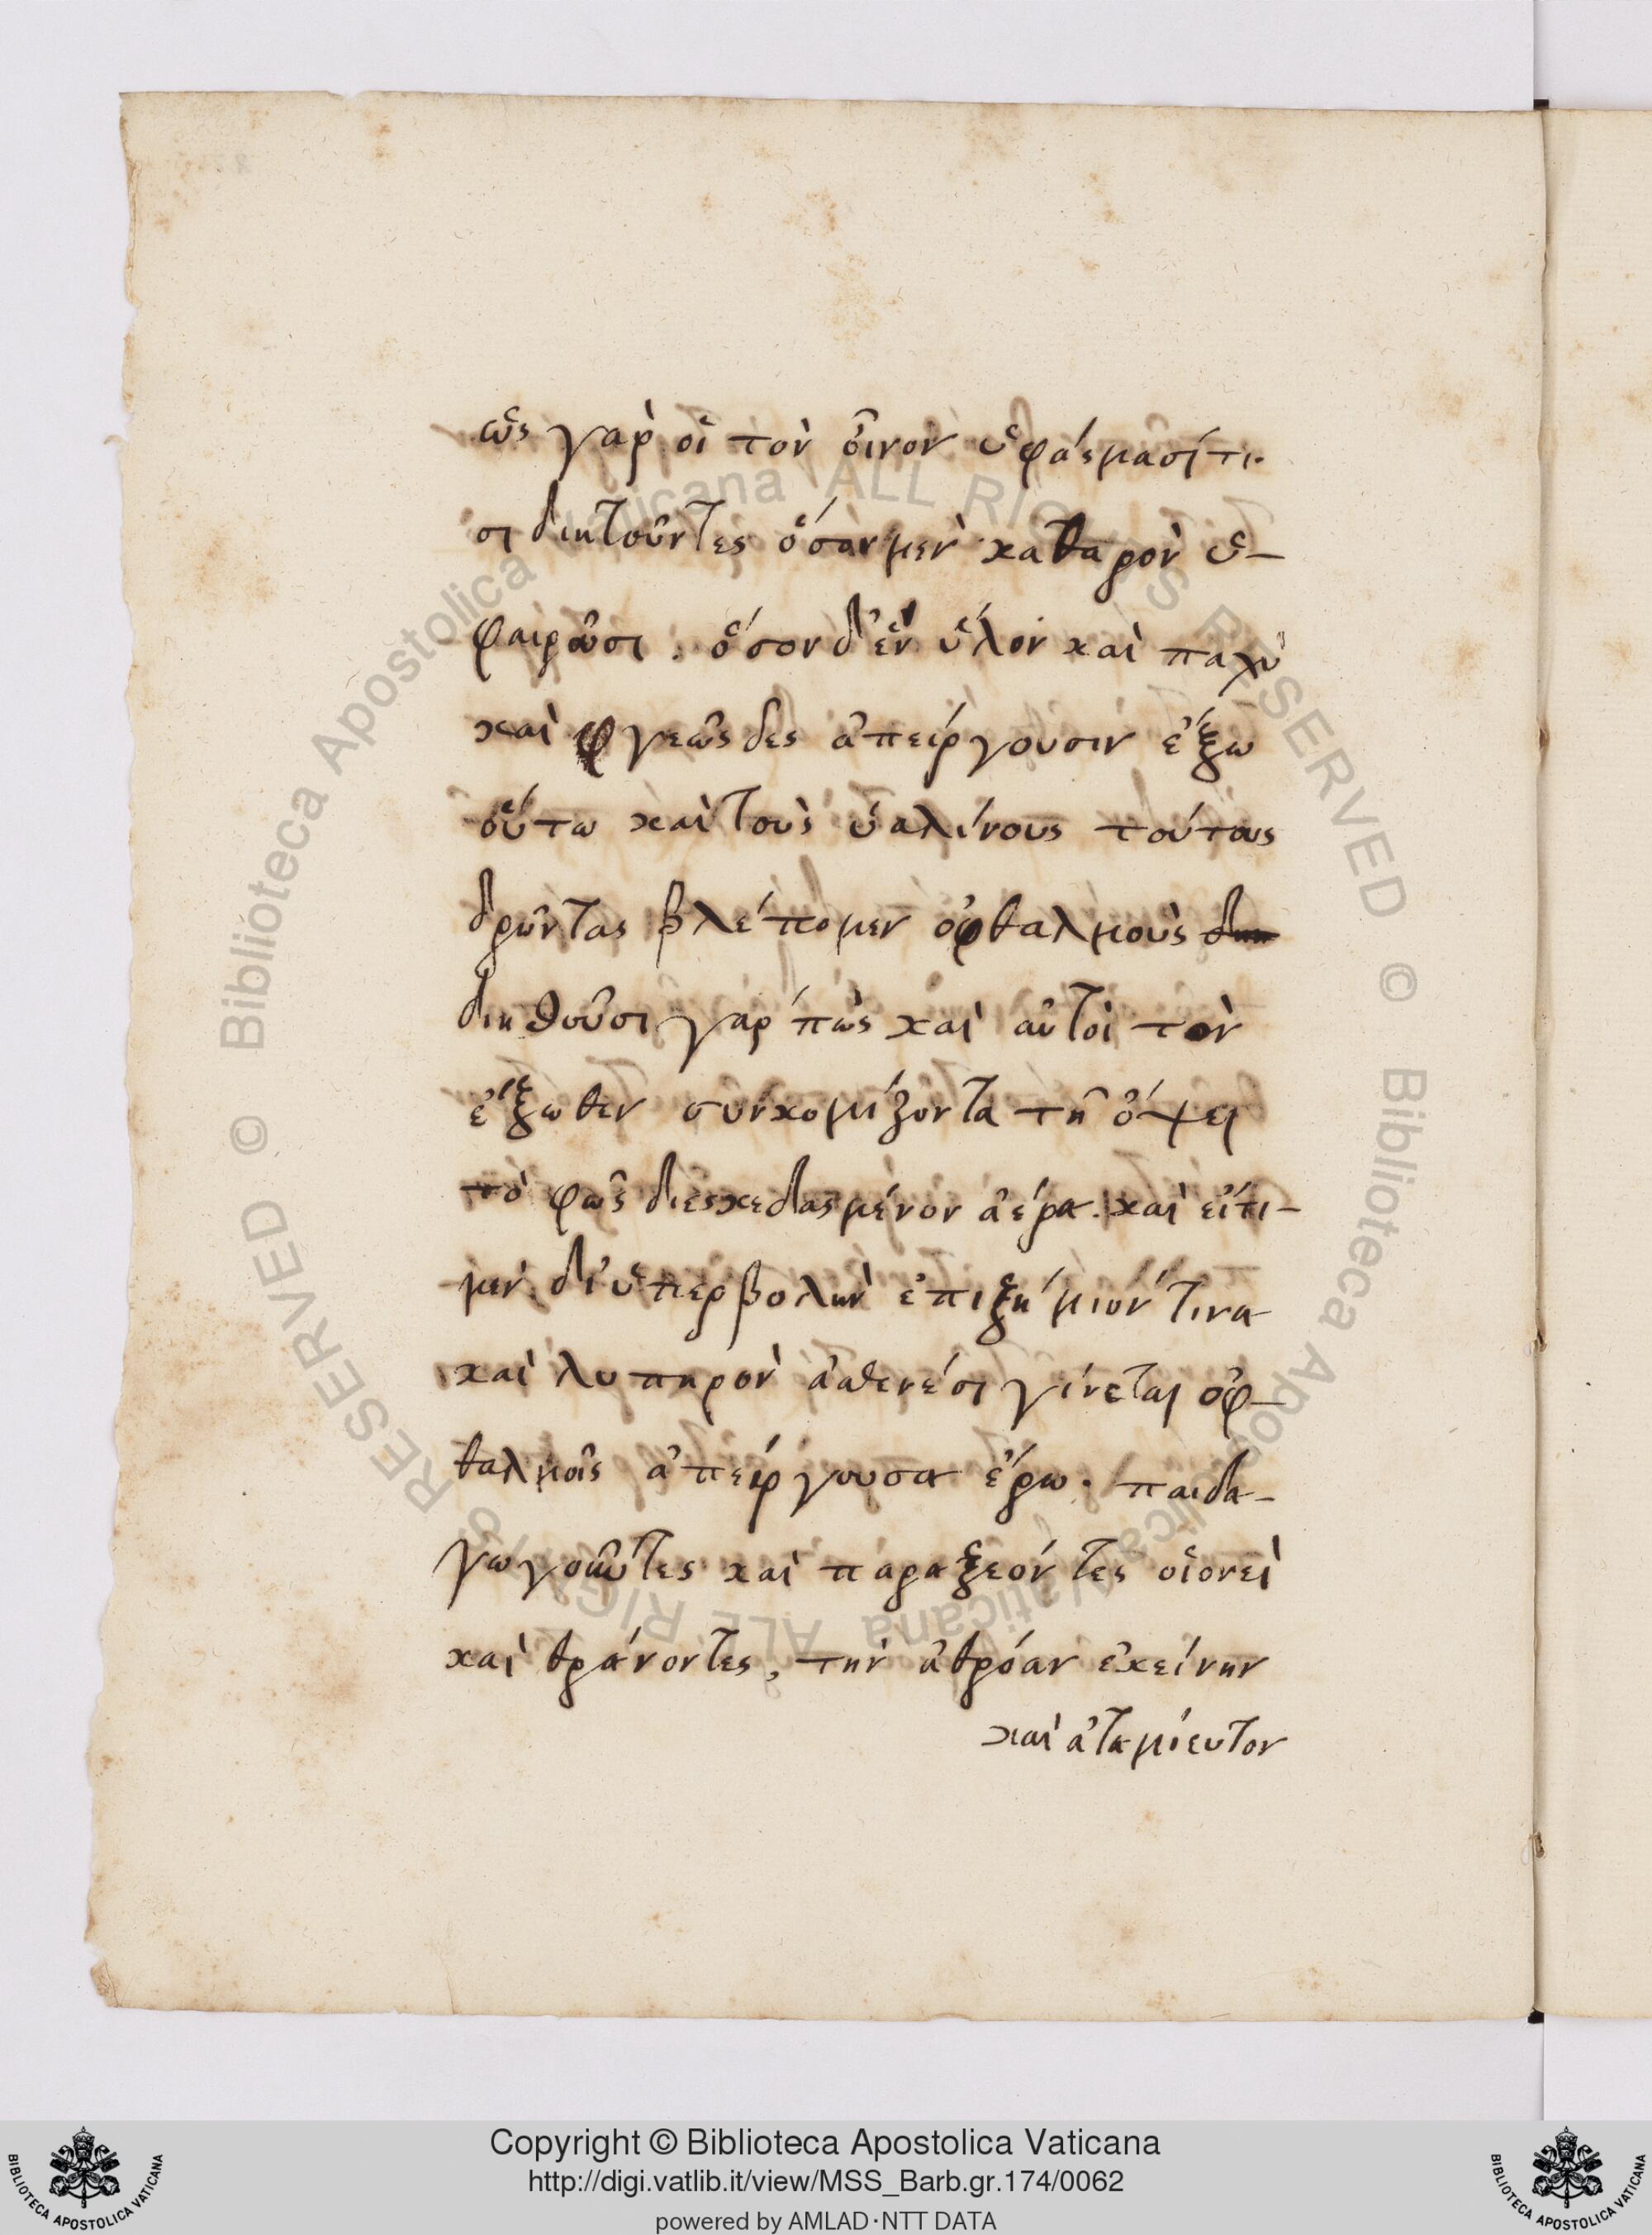 ὡς γὰρ οἱ τὸν οἶνον ὑφάσμασί τι-
σι διητοῦντες ὅσον μὲν καθαρὸν ὑ-
φαιρῶσι. ὅσον δ' ἐν ὕλον καὶ παχὺ
καὶ γεῶδες ἀπείργουσιν ἔξω
οὕτω καὶ τοὺς ὑαλίνους τούτους
δρῶντας βλέπομεν ὀφθαλμοὺς
διηθοῦσι γάρ πως καὶ αὐτοὶ τὸν
ἔξωθεν συνκομίζοντα τῇ ὄψει
τὸ φῶς διεσκεδασμένον ἀέρα. καὶ εἴτι-
μεν δι' ὑπερβολὴν ἐπιζήμιόν τινα
καὶ λυπηρὸν ἀσθενέσι γίνεται ὀφ-
θαλμοῖς ἀπείργουσα ἔρω. παιδα-
γωγοῦντες καὶ παραξέοντες οἱονεὶ
καὶ θράνοντες, τὴν ἀθρόαν ἐκείνην
καὶ ἀταμίευτον
Copyright © Biblioteca Apostolica Vaticana
http://digi.vatlib.it/view/MSS_Barb.gr.174/0062
powered by AMLAD·NTT DATA
BIBLIOTECA APOSTOLICA VATICANA
BIBLIOTECA APOSTOLICA VATICANA
© Biblioteca Apostolica Vaticana ALL RIGHTS RESERVED
© Biblioteca Apostolica Vaticana ALL RIGHTS RESERVED